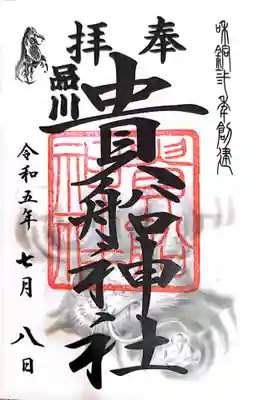 和銅弍年創建
奉拝
品川
貴船神社
令和五年 七月 八日